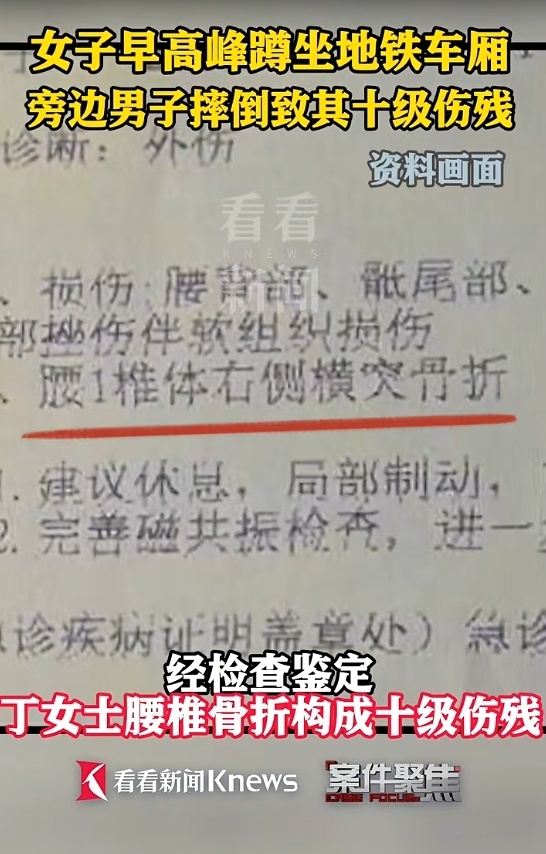 女子早高峰蹲坐地铁车厢
旁边男子摔倒致其十级伤残
诊断：外伤
资料画面
看看
KNEWS
新闻
、损伤:腰背部、骶尾部、
部挫伤伴软组织损伤
、腰1椎体右侧横突骨折
1.建议休息，局部制动，
2.完善磁共振检查，进一
急诊疾病证明盖章处）急诊
经检查鉴定
丁女士腰椎骨折构成十级伤残
看看新闻Knews
案件聚焦
CASE FOCUS